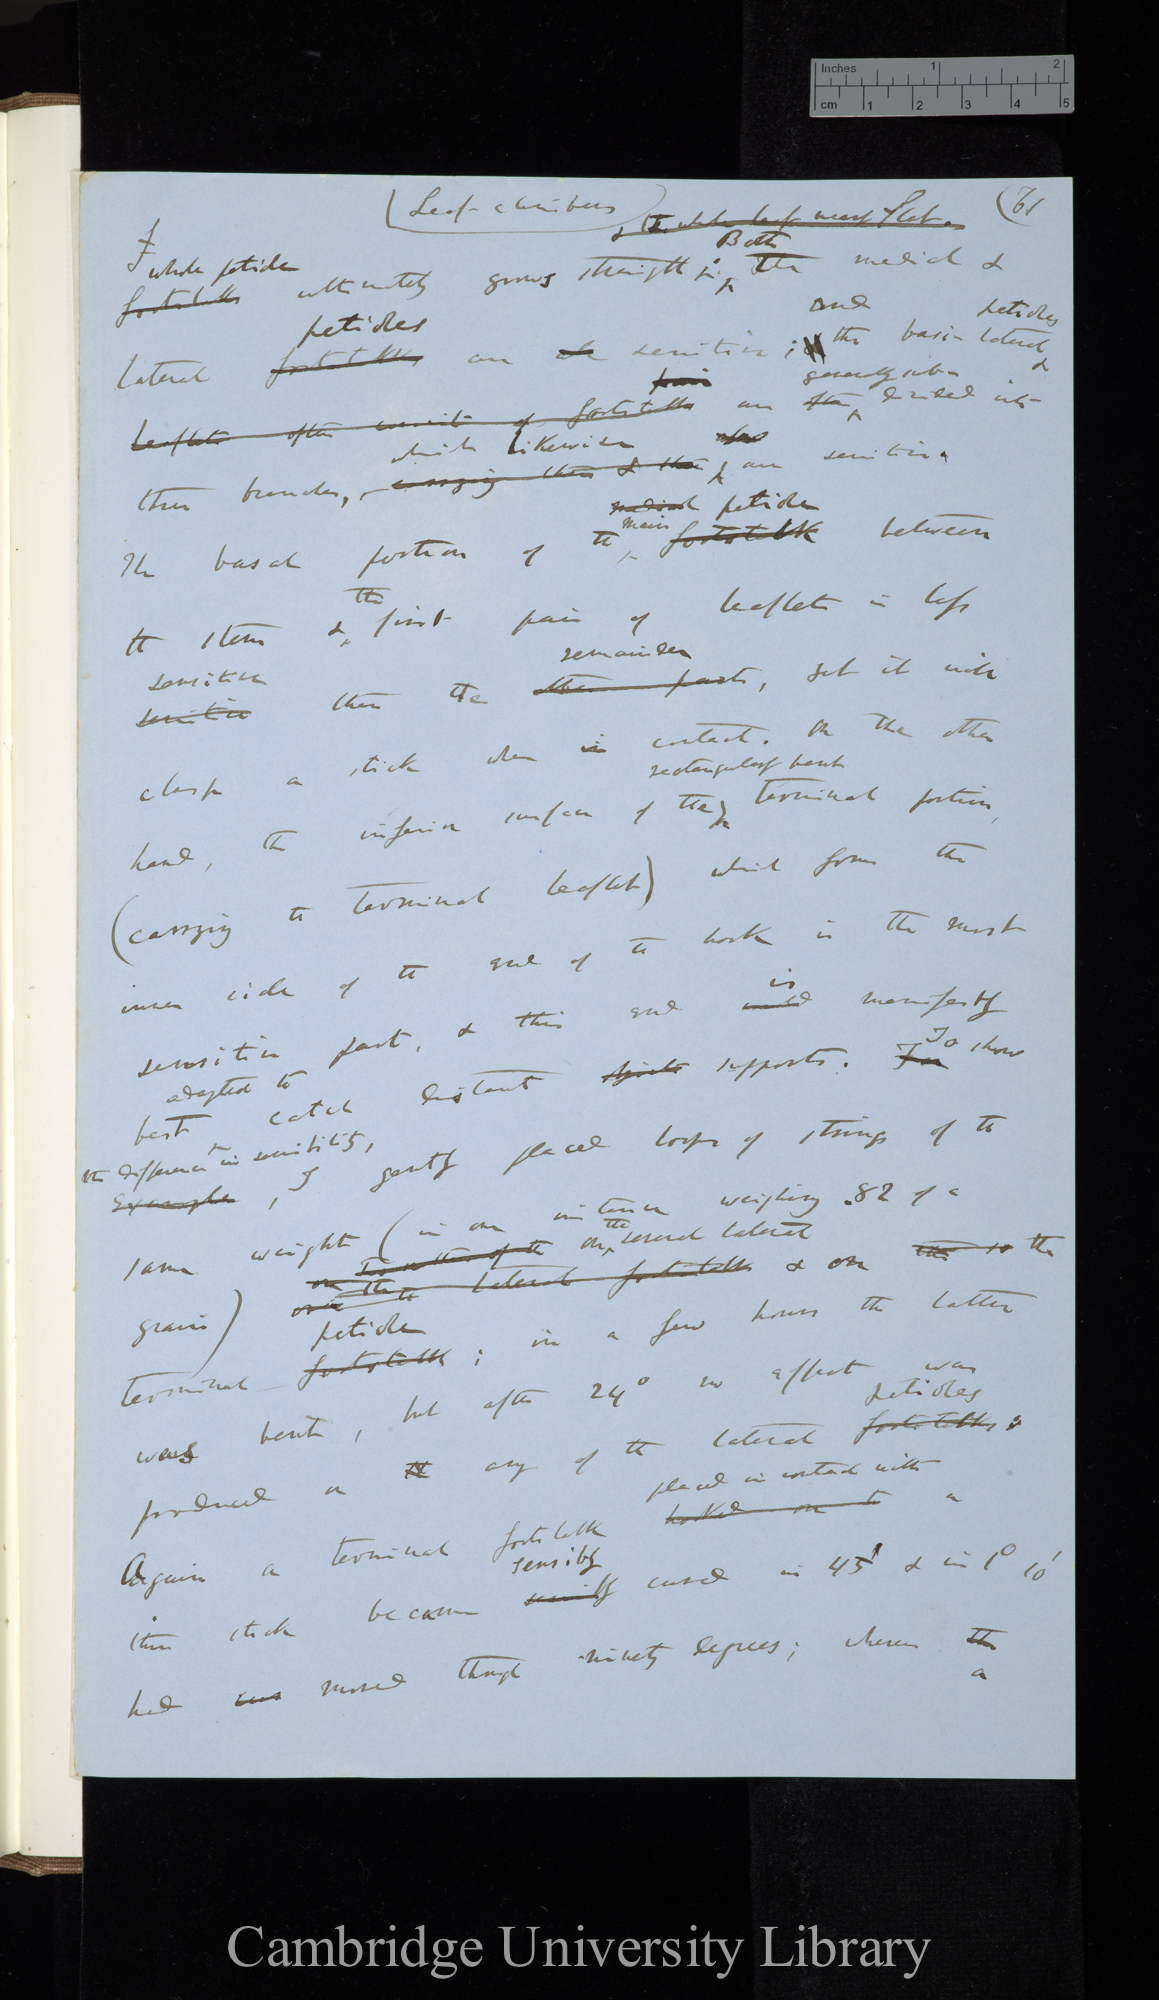 Inches 1 2
cm 1 2 3 4 5
(Leaf-climbers) (61
& the whole leaf nearly flat
Both
whole petiole
footstalks ultimately grows straight; The medial &
and petioles
petioles
lateral footstalks are all sensitive; the basi-lateral
&
pair generally sub-
leaflets often consist of footstalks are often divided into
which likewise also
three branches, carrying them & these are sensitive.
medial petiole
main
The basal portion of the footstalk between
the
the stem & first pair of leaflets is less
sensitive remainder
sensitive than the other parts, yet it will
clasp a stick when in contact. On the other
rectangularly bent
hand, the inferior surface of the terminal portion,
(carrying the terminal leaflet) which forms the
inner side of the end of the hook is the most
is
sensitive part, & this end manifestly
adapted to To show
best catch distant supports. For
the difference in sensibility,
Example, I gently placed loops of strings of the
same weight (in one instance weighing .82 of a
on the several lateral
grain) on the lateral footstalks & on the to the
petiole
terminal footstalk; in a few hours the latter
was bent, but after 24° no effect was
petioles
produced on the any of the lateral footstalks.
placed in contact with
Again a terminal footstalk hooked on to a
sensibly
thin stick became curved in 45' & in 1° 10'
had moved through ninety degrees; whereas the
a
Cambridge University Library